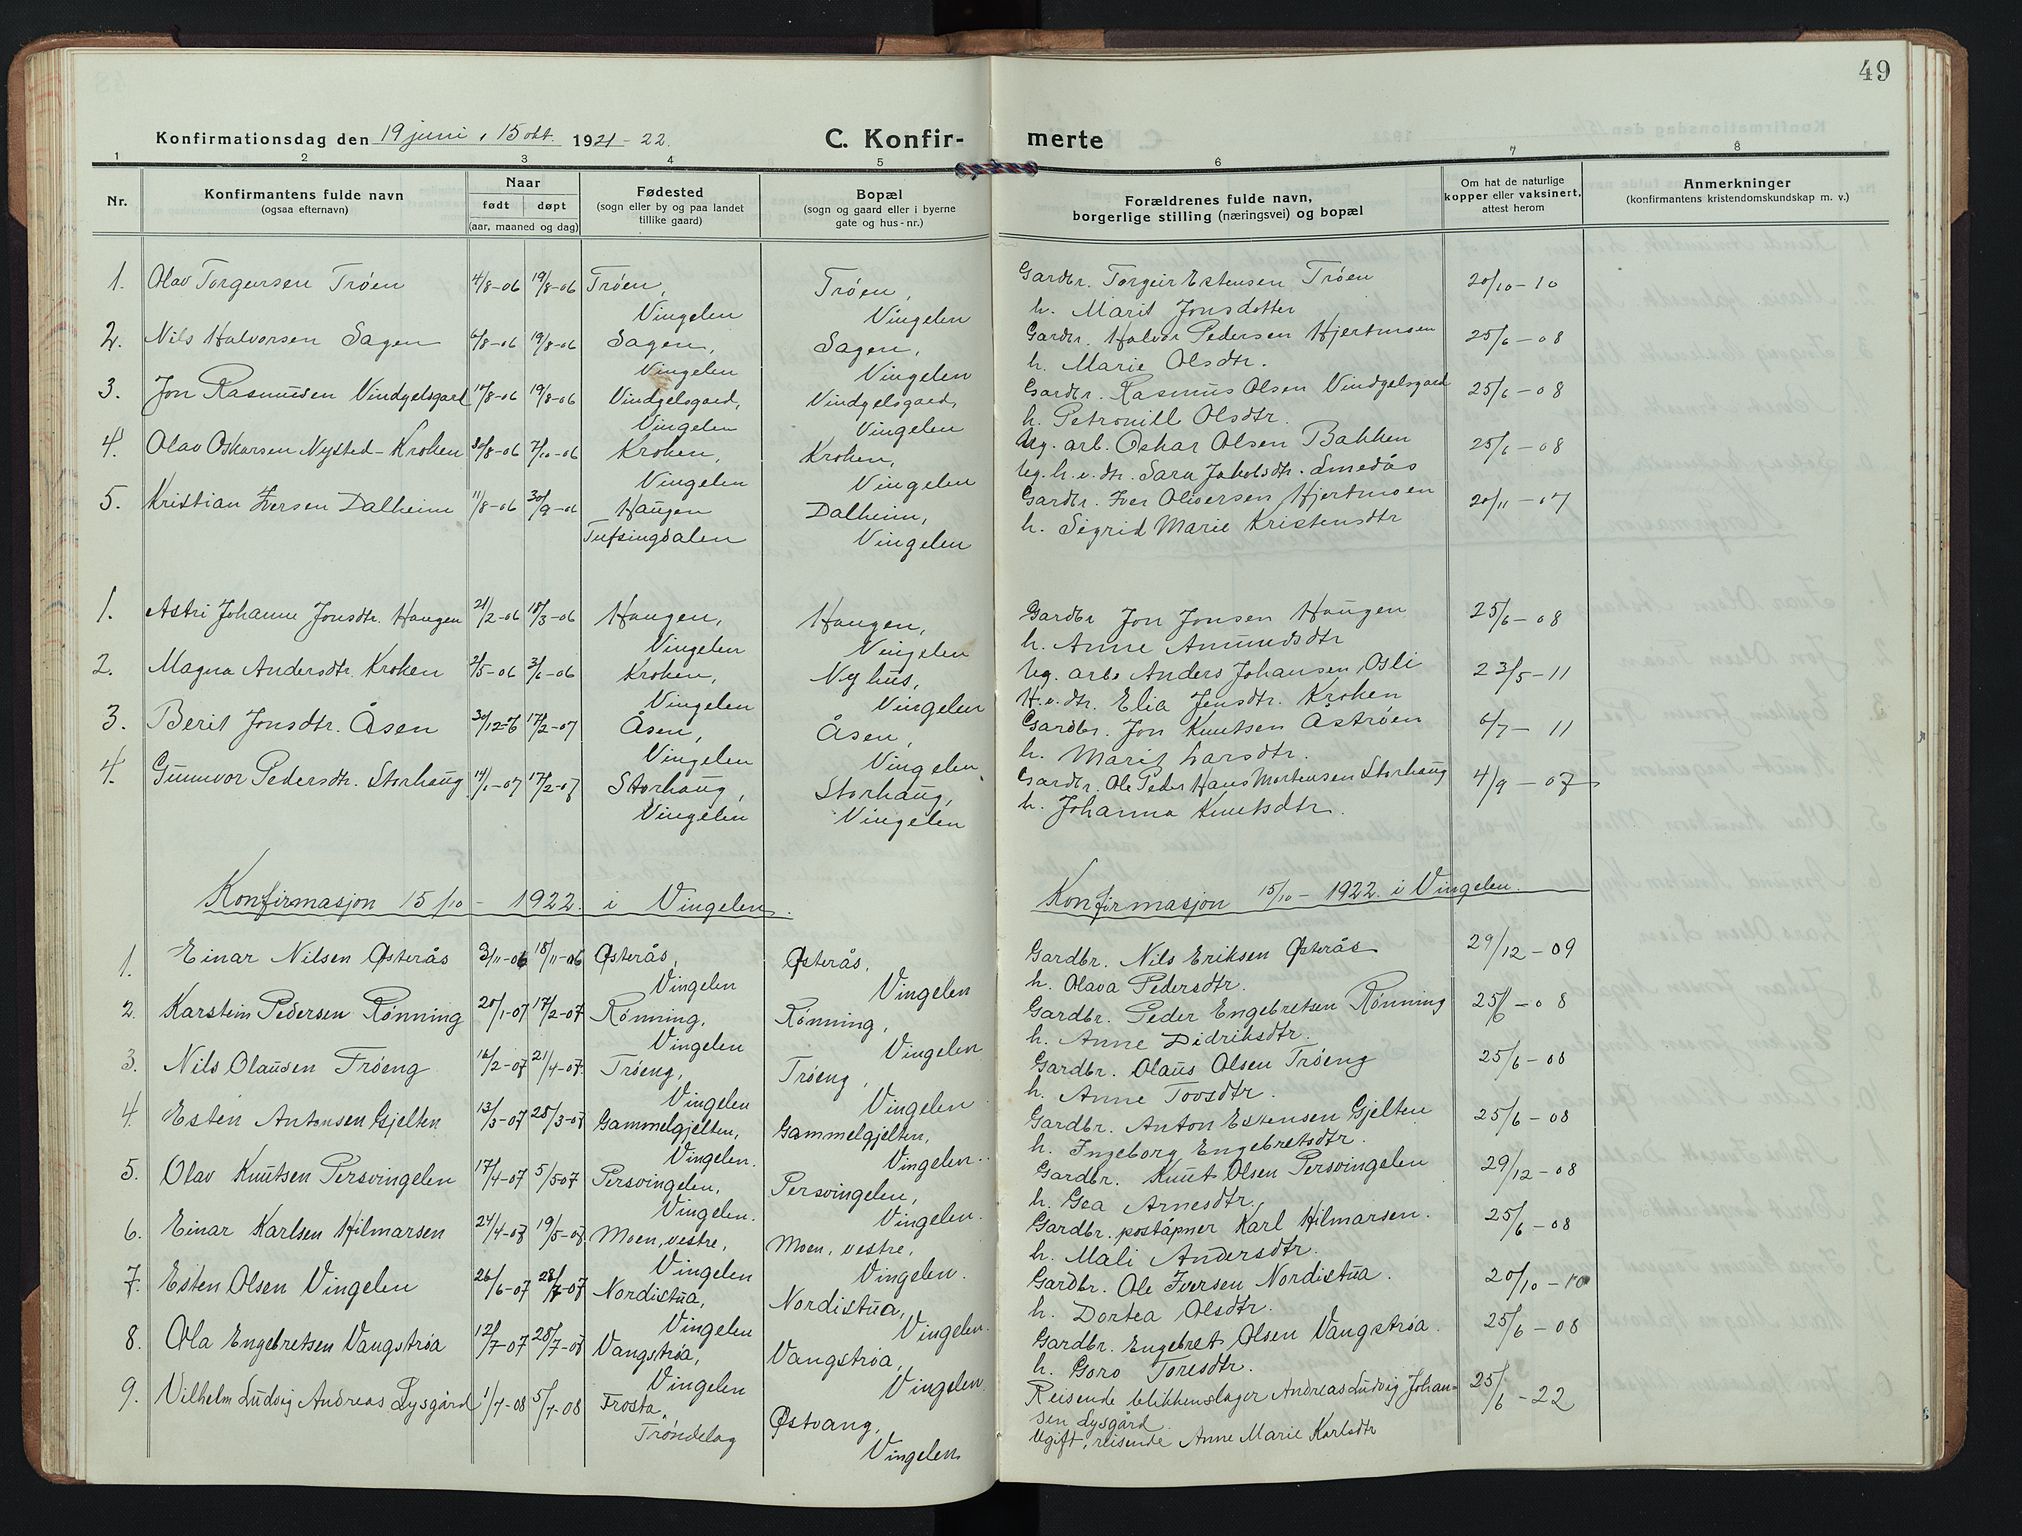 49
Konfirmationsdag den 19 juni, 15 okt. 1921-22.
C. Konfir-
merte
1 2 3 4 5 6 7 8
Nr.
Konfirmantens fulde navn
(ogsaa efternavn)
Naar
født døpt
(aar, maaned og dag)
Fødested
(sogn eller by og paa landet
tillike gaard)
Bopæl
(sogn og gaard eller i byerne
gate og hus-nr.)
Forældrenes fulde navn,
borgerlige stilling (næringsvei) og bopæl
Om hat de naturlige
kopper eller vaksinert,
attest herom
Anmerkninger
(konfirmantens kristendomskundskap m. v.)
1. Olav Torgeirsen Trøen 4/8-06 19/8-06 Trøen, Trøen, Gardbr. Torgeir Estensen Trøen 20/10-10
Vingelen Vingelen h. Marit Jonsdotter
2. Nils Halvorsen Sagen 6/8-06 19/8-06 Sagen, Sagen, Gardbr. Halvor Pedersen Hjertmoen 25/6-08
Vingelen Vingelen h. Marie Olsdtr.
3. Jon Rasmusen Vindgelsgard 10/8-06 19/8-06 Vindgelsgard, Vindgelsgard, Gardbr. Rasmus Olsen Vindgelsgard 25/6-08
Vingelen Vingelen h. Petronill Olsdtr.
4. Olav Oskarsen Nysted-Kroken 30/8-06 7/10-06 Kroken, Kroken, Ug. arb. Oskar Olsen Bakken 25/6-08
Vingelen Vingelen Ug. h. v. dtr. Sara Jakobsdtr. Smedås
5. Kristian Iversen Dalheim 11/8-06 30/9-06 Haugen Dalheim, Gardbr. Iver Oliversen Hjertmoen 20/11-07
Tufsingdalen Vingelen h. Sigrid Marie Kristensdtr
1. Astri Johanne Jonsdtr. Haugen 21/2-06 18/3-06 Haugen, Haugen, Gardbr Jon Jonsen Haugen 25/6-08
Vingelen Vingelen h. Anne Amundsdtr
2. Magna Andersdtr. Kroken 2/5-06 3/6-06 Kroken, Nyhus, Ug. arb. Anders Johansen Osli 23/5-11
Vingelen Vingelen H.v.dtr. Elia Jensdtr. Kroken
3. Berit Jonsdtr. Åsen 30/12-06 17/2-07 Åsen, Åsen, Gardbr. Jon Knutsen Åstrøen 6/7-11
Vingelen Vingelen h. Marit Larsdtr.
4. Gunnvor Pedersdtr. Storhaug 14/1-07 17/2-07 Storhaug, Storhaug, Gardbr. Ole Peder Hans Mortensen Storhaug 4/9-07
Vingelen Vingelen h. Johanna Knutsdtr.
Konfirmasjon 15/10 - 1922. i Vingelen. Konfirmasjon 15/10-1922. i Vingelen.
1. Einar Nilsen Østerås 3/11-06 18/11-06 Østerås, Østerås, Gardbr. Nils Eriksen Østerås 29/12-09
Vingelen Vingelen h. Olava Pedersdtr.
2. Karstein Pedersen Rønning 20/1-07 17/2-07 Rønning, Rønning, Gardbr. Peder Engebretsen Rønning 25/6-08
Vingelen Vingelen h. Anne Didriksdtr.
3. Nils Olausen Trøeng 16/2-07 21/4-07. Trøeng, Trøeng, Gardbr. Olaus Olsen Trøeng 25/6-08
Vingelen Vingelen h. Anne Tovsdtr.
4. Esten Antonsen Gjelten 13/3-07 28/3-07 Gammelgjelten, Gammelgjelten, Gardbr. Anton Estensen Gjelten 25/6-08
Vingelen. Vingelen. h. Ingeborg Engebretsdtr.
5. Olav Knutsen Persvingelen 17/4-07 5/5-07 Persvingelen, Persvingelen, Gardbr. Knut Olsen Persvingelen 29/12-08
Vingelen. Vingelen. h. Gea Arnesdtr.
6. Einar Karlsen Hilmarsen 24/4-07 19/5-07 Moen, vestre, Moen, vestre, Gardbr. poståpner Karl Hilmarsen. 25/6-08
Vingelen Vingelen. h. Mali Andersdtr.
7. Esten Olsen Vingelen 26/6-07 28/7-07 Nordistua, Nordistua, Gardbr. Ole Iversen Nordistua. 20/10-10
Vingelen Vingelen. h. Dortea Olsdtr.
8. Ola Engebretsen Vangstrøa 12/7-07 28/7-07 Vangstrøa, Vangstrøa, Gardbr. Engebret Olsen Vangstrøa. 25/6-08
Vingelen Vingelen. h. Goro Toresdtr.
9. Vilhelm Ludvig Andreas Lysgård 1/4-08 5/4-08 Frosta, Østvang, Reisende blikkenslager Andreas Ludvig Johan- 25/6-22
Trøndelag Vingelen. sen Lysgård.
Ugift, reisende Anne Marie Karlsdtr